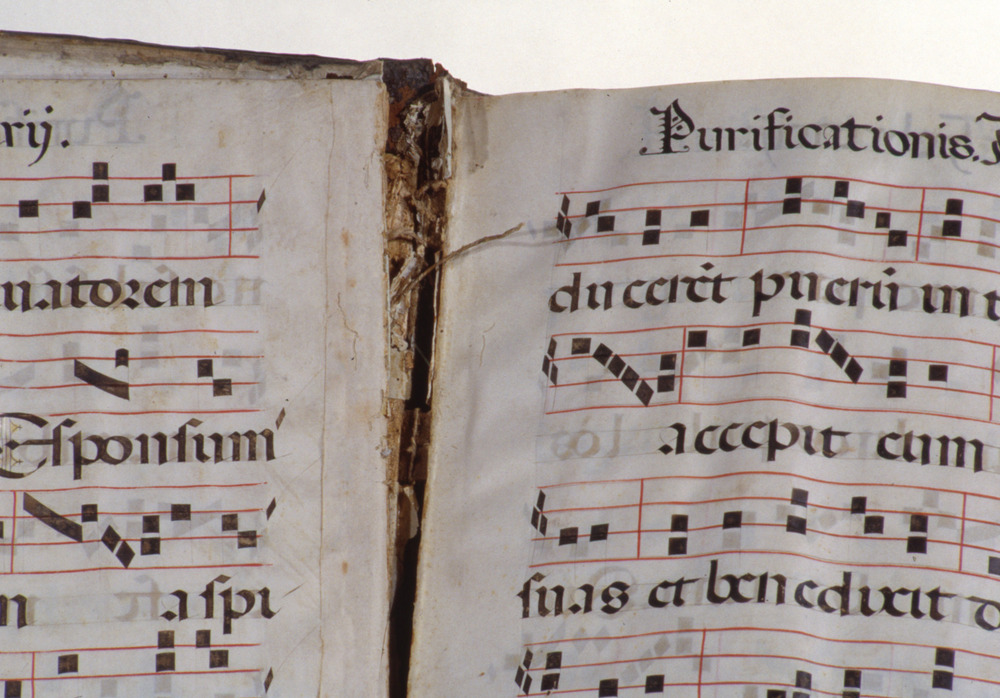 rij.
natorem
Esponsum
n aspi
Purificationis.
duceret puerū in
accepit eum
suas et benedixit d